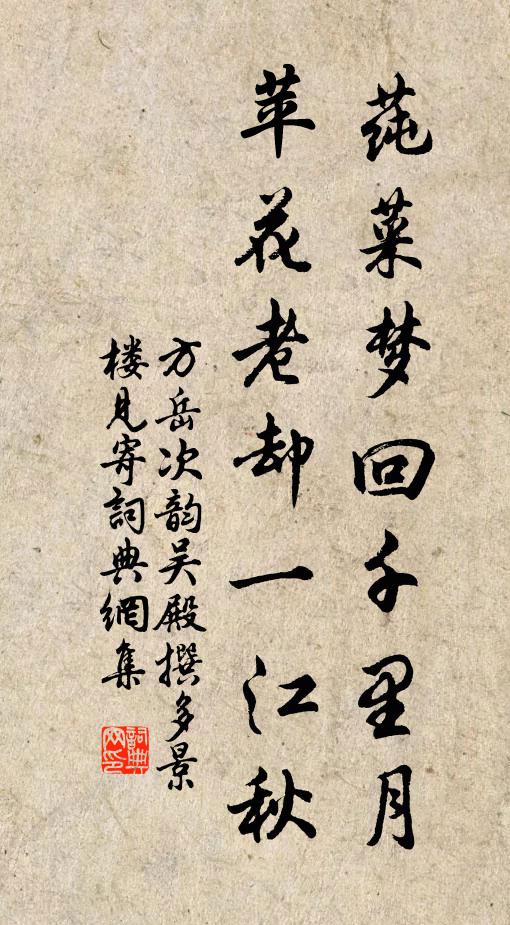 莼菜梦回千里月
苹花老却一江秋
方岳次韵吴殿撰多景
楼见寄詞典網集
詞典
网印